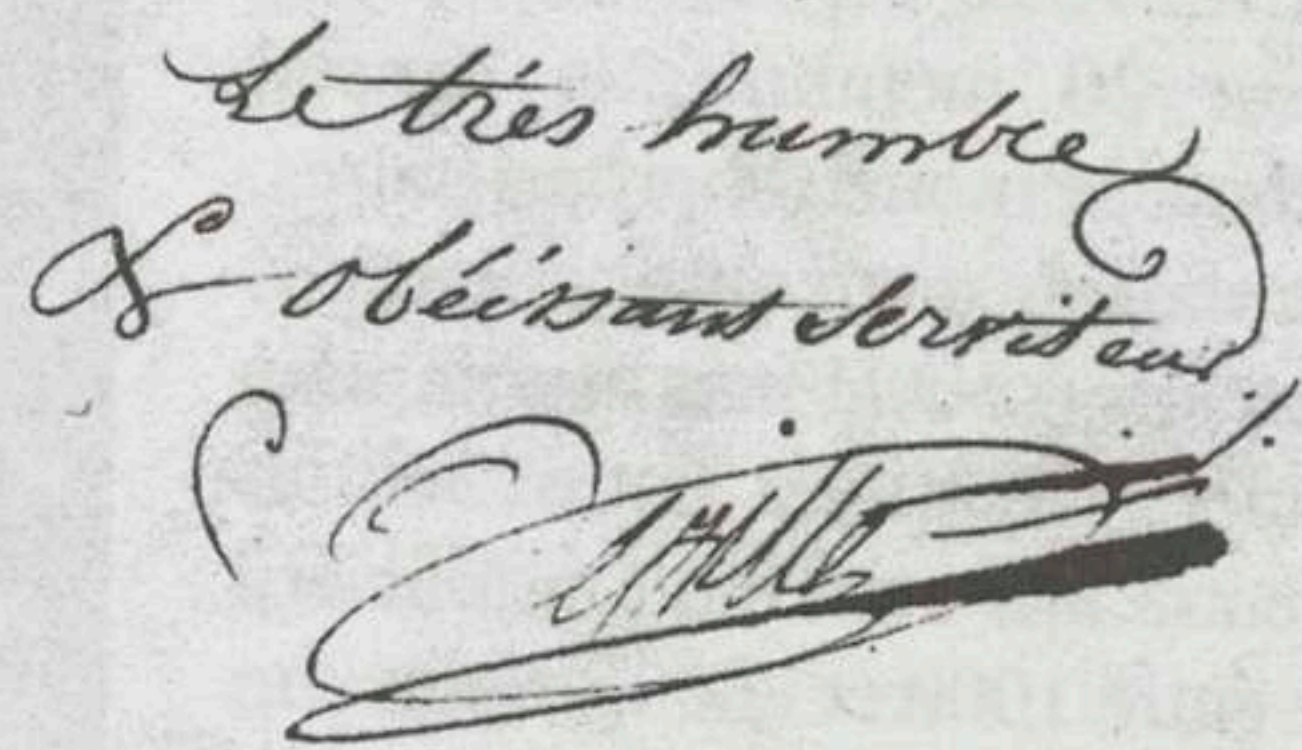 Le très humble
& obéissant Serviteur